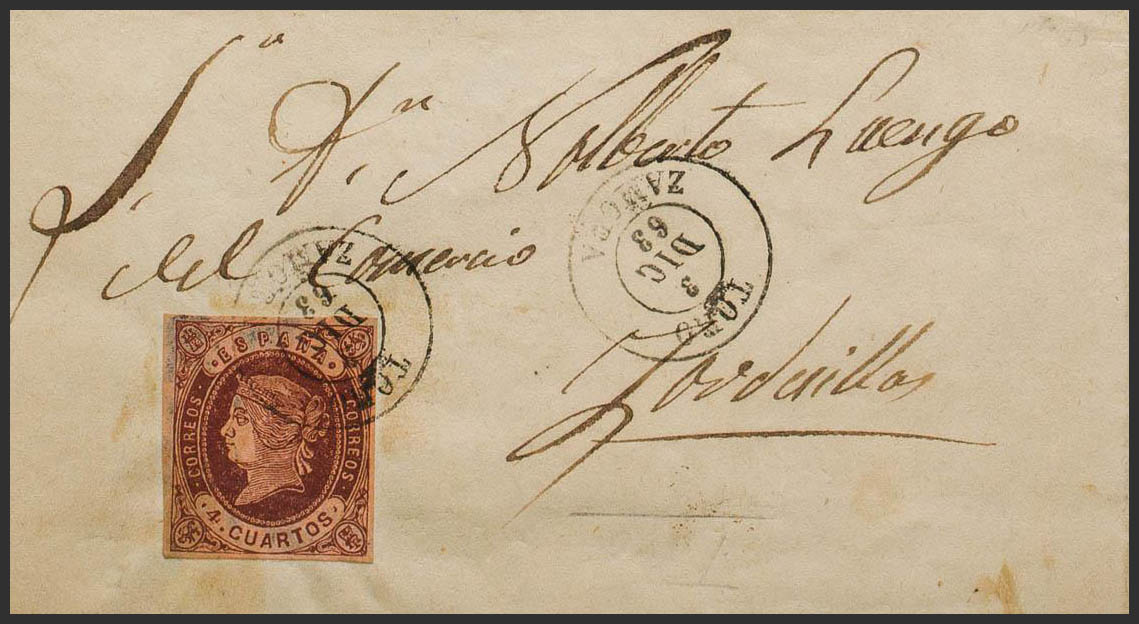 S.ʳ D.ⁿ Nolberto Luengo
del Comercio
Tordesillas
TORO
3
DIC
63
ZAMORA
TORO
DIC
63
ESPAÑA
CORREOS
CORREOS
4 CUARTOS